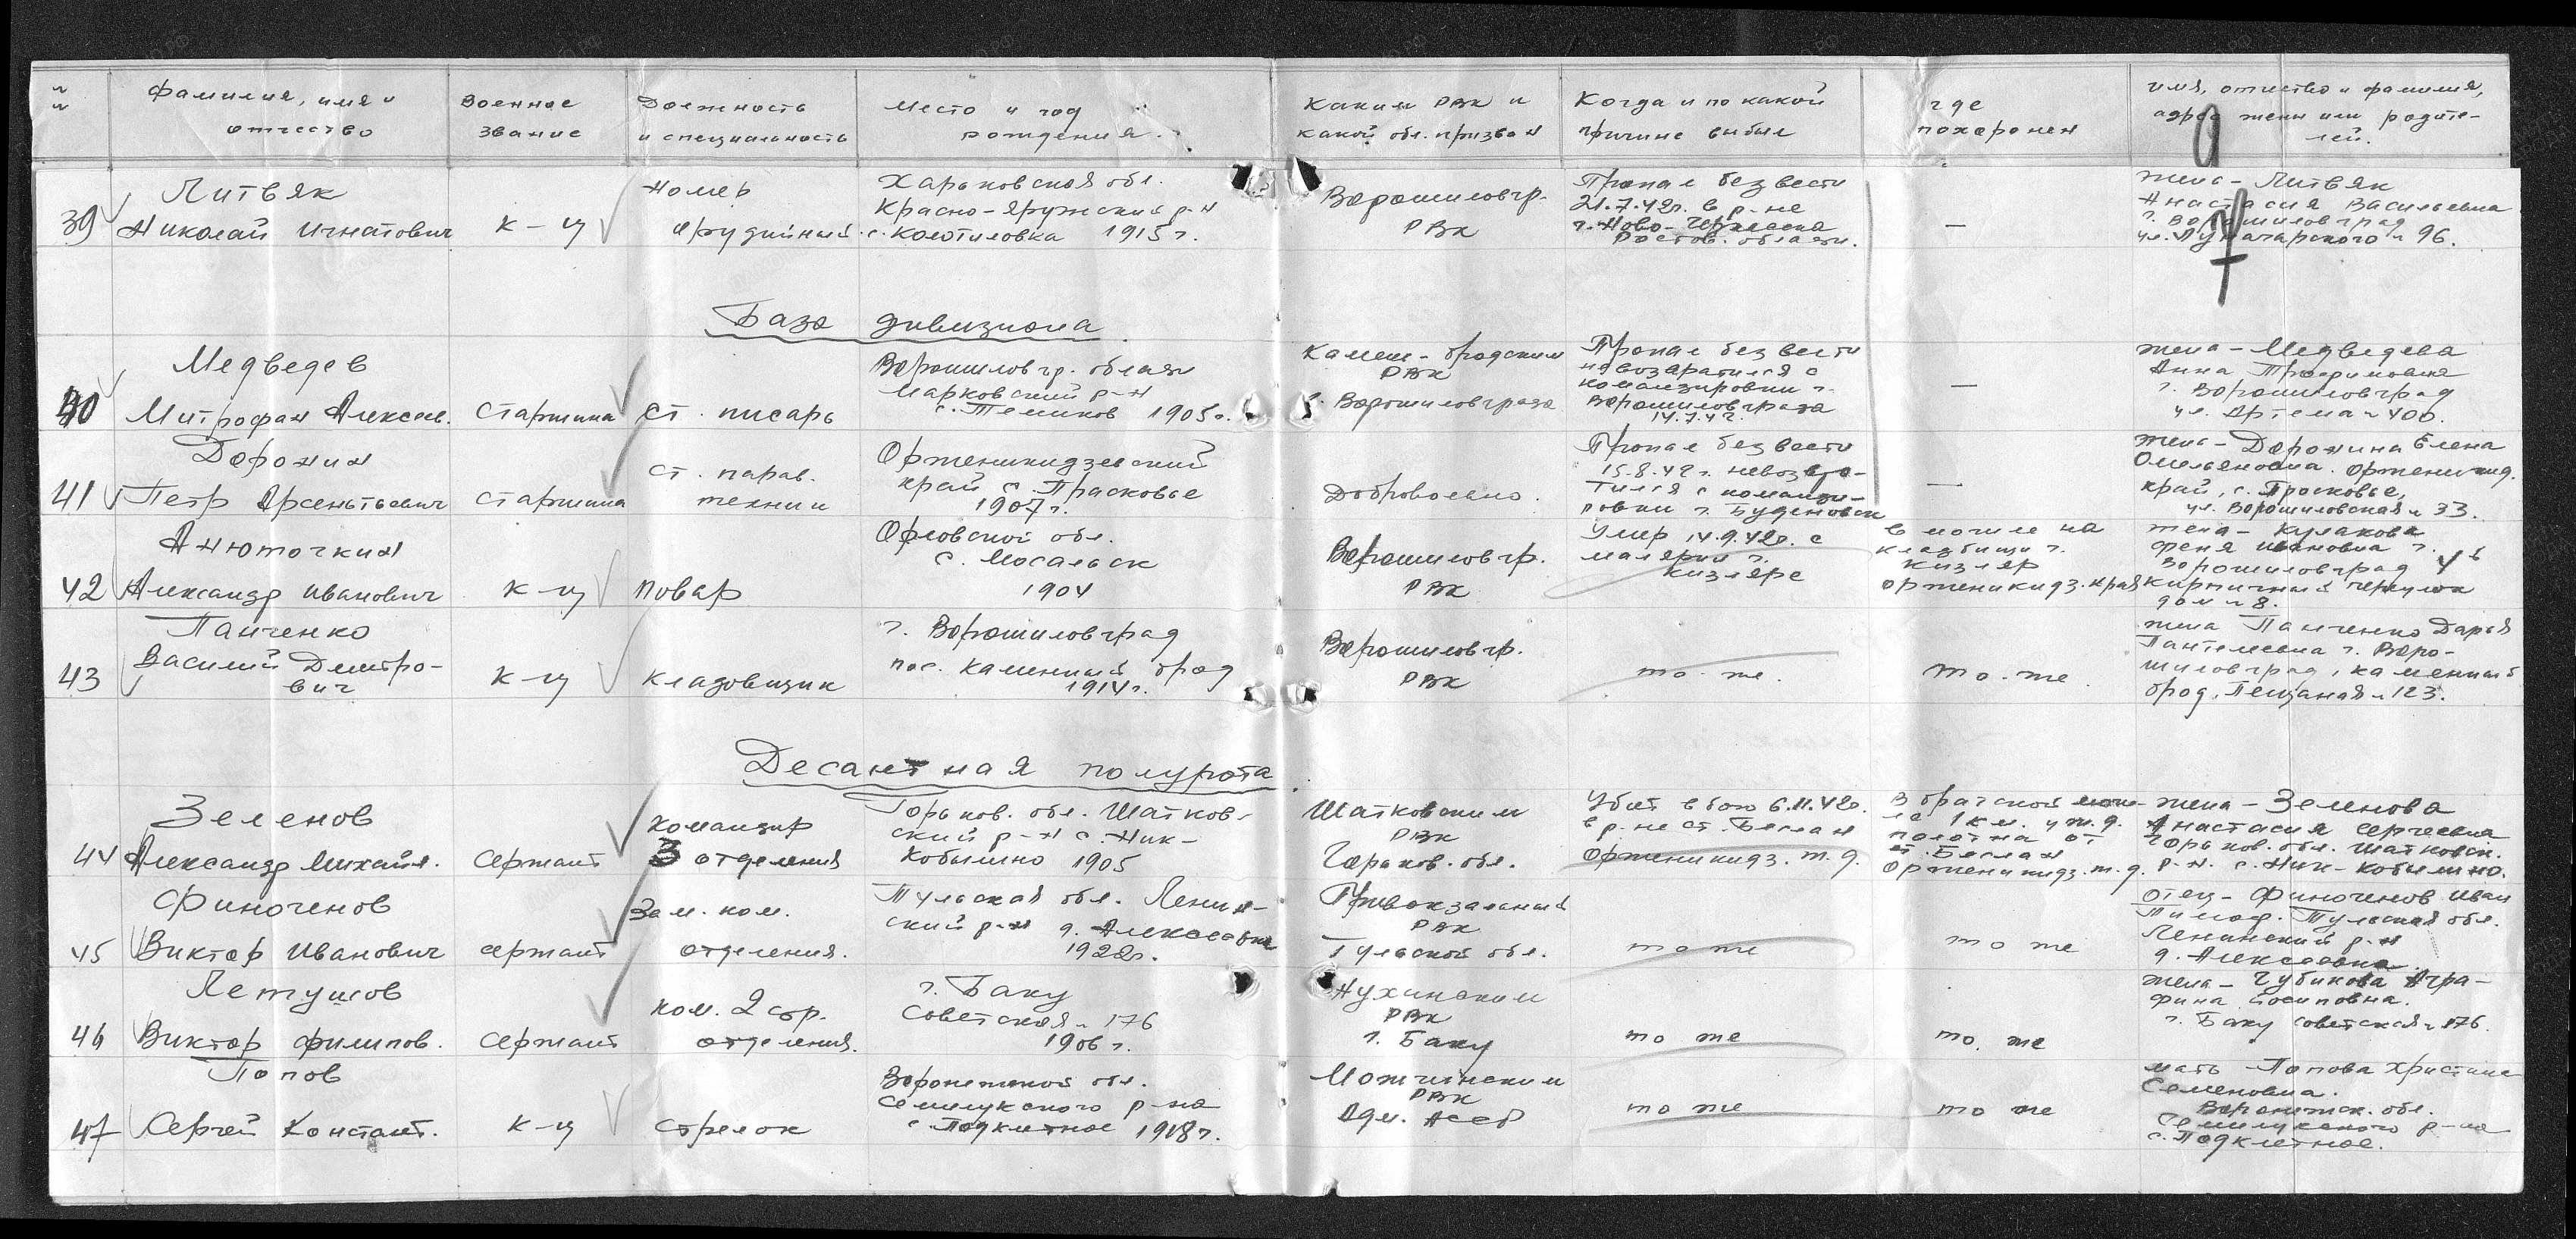 №№
Фамилия, имя и отчество
Военное звание
Должность и специальность
Место и год рождения.
Каким РВК и какой обл. призван
Когда и по какой причине выбыл
где похоронен
имя, отчество и фамилия, адрес жены или родителей.
39
Литвяк
Николай Игнатович
к-ц
номер
орудийный
Харьковская обл.
Красно-Яружский р-н
с. Колотиловка 1915 г.
Ворошиловгр.
РВК
Пропал без вести
21.7.42г. в р-не
г. Ново-Черкасска
Ростов. области.
—
жена - Литвяк
Анастасия Васильевна
г. Ворошиловград
ул. Луначарского № 96.
База дивизиона
40
Медведев
Митрофан Алексеев.
Старшина
Ст. писарь
Ворошиловгр. област
Марковский р-н
1905г.
Камен-бродским
РВК
г. Ворошиловграда
Пропал без вести
невозвратился с
командировки г.
Ворошиловграда
14.7.42.
—
жена - Медведева
Анна
г. Ворошиловград
ул. Артема № 400.
41
Доронин
Петр Арсентьевич
старшина
ст. парав.
техник
Орженикидзевский
край с. Прасковье
1907 г.
Добровольно.
Пропал без вести
15.8.42г. невозвра-
тился с команди-
ровки г. Буденовск
—
жена - Доронина Елена
Омельяновна. Орженикид.
край, с. Просковье,
ул. Ворошиловская № 33.
42
Анюточкин
Александр Иванович
к-ц
повар
Орловской обл.
с. Мосальск
1904
Ворошиловгр.
РВК
Умер 14.9.42г. с
малярии г.
Кизляре
в могиле на
кладбищи г.
Кизляр
орженикидз. края
жена - Кулакова
Феня Ивановна г.
Ворошиловград
Кирпичный переулок
дом № 8.
43
Панченко
Василий Дмитро-
вич
к-ц
кладовщик
г. Ворошиловград
пос. Каменный брод
1914г.
Ворошиловгр.
РВК
то-же.
то-же.
жена Панченко Дарья
Пантелевна г. Воро-
шиловград, каменный
брод, Пещаная № 123.
Десантная полурота
44
Зеленов
Александр Михайл.
сержант
командир
3 отделения
Горьков. обл. Шатков-
ский р-н с. Ник-
Кобылино 1905
Шатковским
РВК
Горьков. обл.
Убит в бою 6.11.42г.
в р-не ст. Беслан
Орженикидз. ж.д.
В братской моги-
ле 1 км. у ж.д.
полотна от
ст. Беслан
Орженикидз. ж.д.
жена - Зеленова
Анастасия Сергеевна
Горьков. обл. Шатковск.
р-н. с. Ник-Кобылино.
45
Финогенов
Виктор Иванович
сержант
Зам. ком.
отделения.
Тульская обл. Ленин-
ский р-н д. Алексеевка
1922г.
Привокзальный
РВК
Тульской обл.
то же
то же
отец - Финогенов Иван
Тимоф. Тульская обл.
Ленинский р-н
д. Алексеевка.
46
Летушов
Виктор Филипов.
сержант
ком. 2 стр.
отделения.
г. Баку
Советская № 176
1906 г.
Нухинским
РВК
г. Баку
то же
то же
жена - Губикова Агра-
фина Иосиповна.
г. Баку советская № 176.
47
Попов
Сергей Констант.
к-ц
стрелок
Воронежской обл.
Семилукского р-на
с. Подклетное 1918 г.
РВК
Адм. АССР
то же
то же
мать - Попова Христина
Семеновна.
Воронежск. обл.
Семилукского р-на
с. Подклетное.